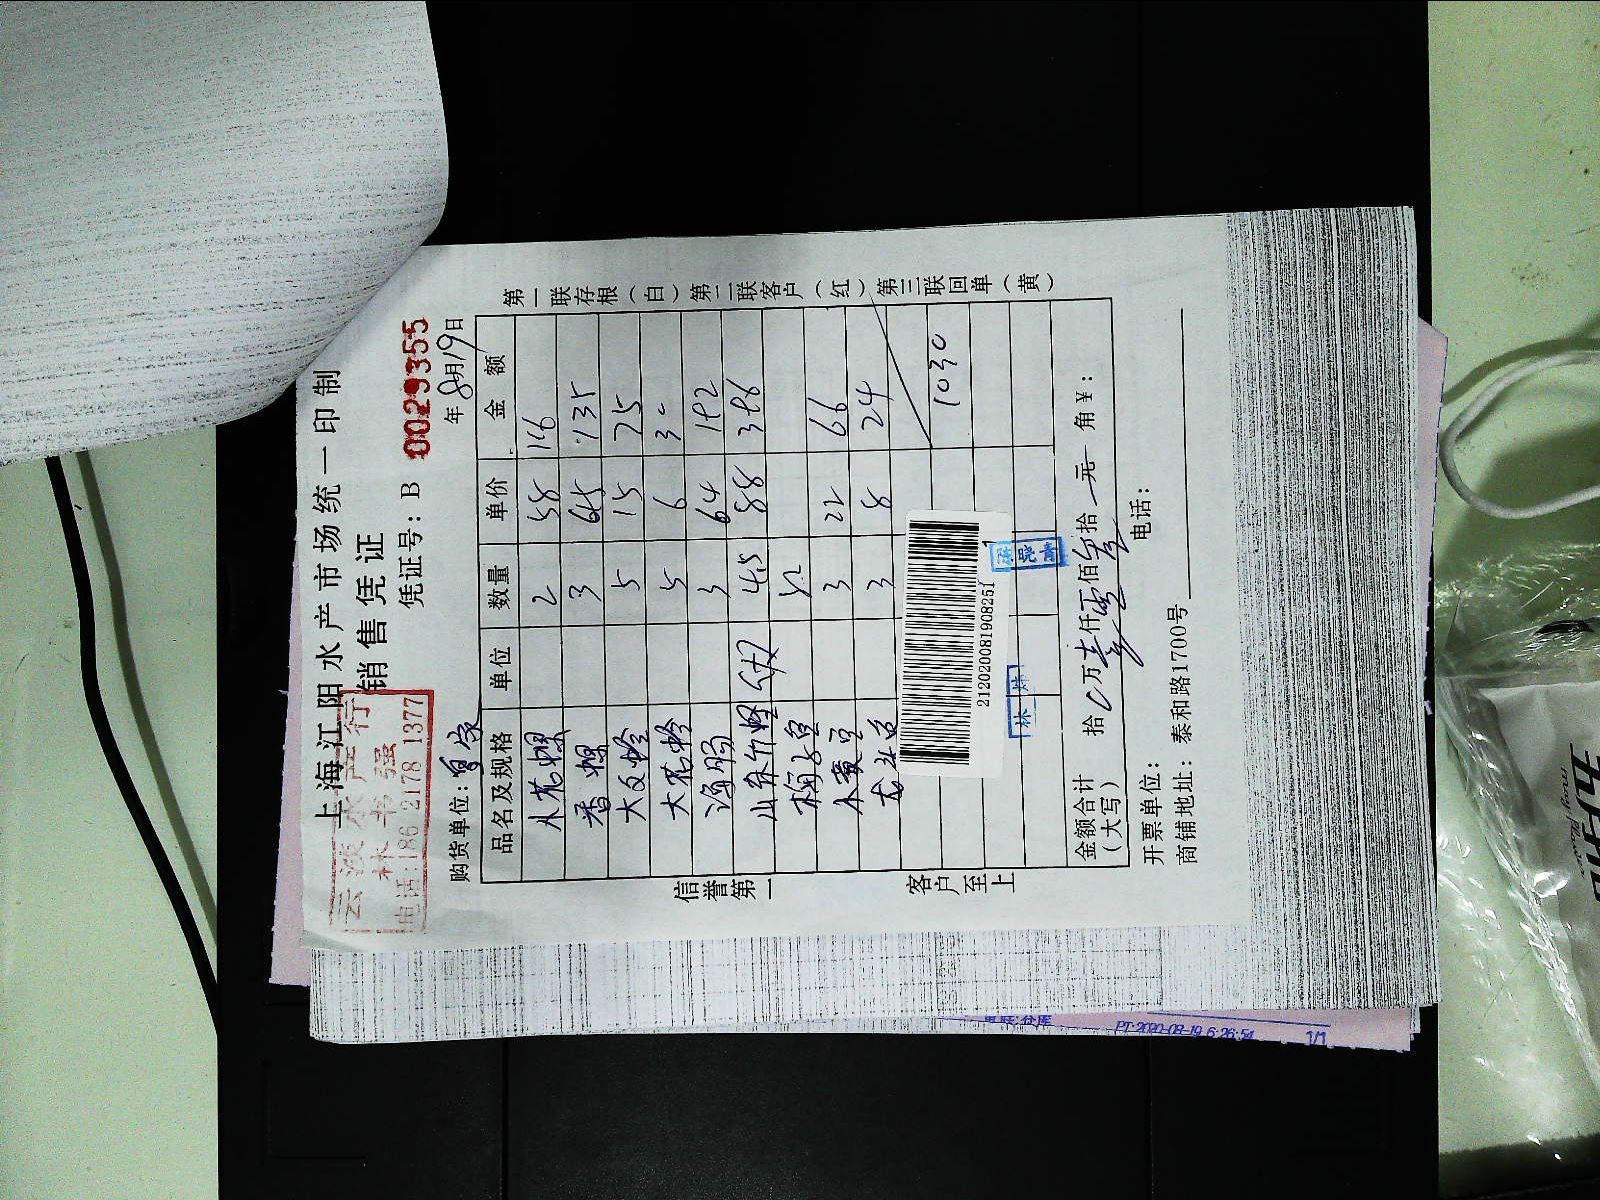 上海江阳水产市场统一印制
销售凭证
云淡水产行
林书强
电话:186 2178 1377
凭证号:B 0029355
购货单位:
年8月19日
品名及规格 单位 数量 单价 金额
花螺 2 58 116
香螺 3 45 135
大文蛤 5 15 75
大花蛤 5 6 30
海肠 3 64 192
4.5 88 396
3 22 66
3 8 24
1030
212020081908251
陈晓青
林
金额合计(大写) 拾 万壹仟零佰叁拾 元 角 ¥:
开票单位: 电话:
商铺地址:泰和路1700号
信誉第一
客户至上
第一联存根(白)第二联客户(红)第三联回单(黄)
PT:2020-08-19 6:26:54
1/1